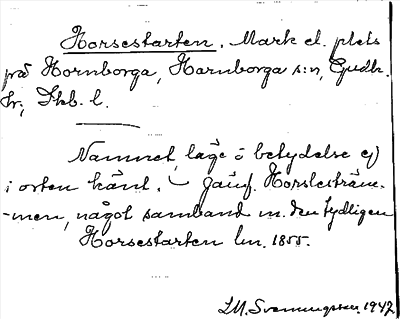 Horsestarten. Mark el. plats
på Hornborga, Hornborga s:n, Gudh.
hr, Skb. l.
Namnet, läge o betydelse ej
i orten känt. – Jämf. Horslesträm-
-men, något samband m. den tydligen
Horsestarten ln. 1855.
L.M. Svenungsson. 1942